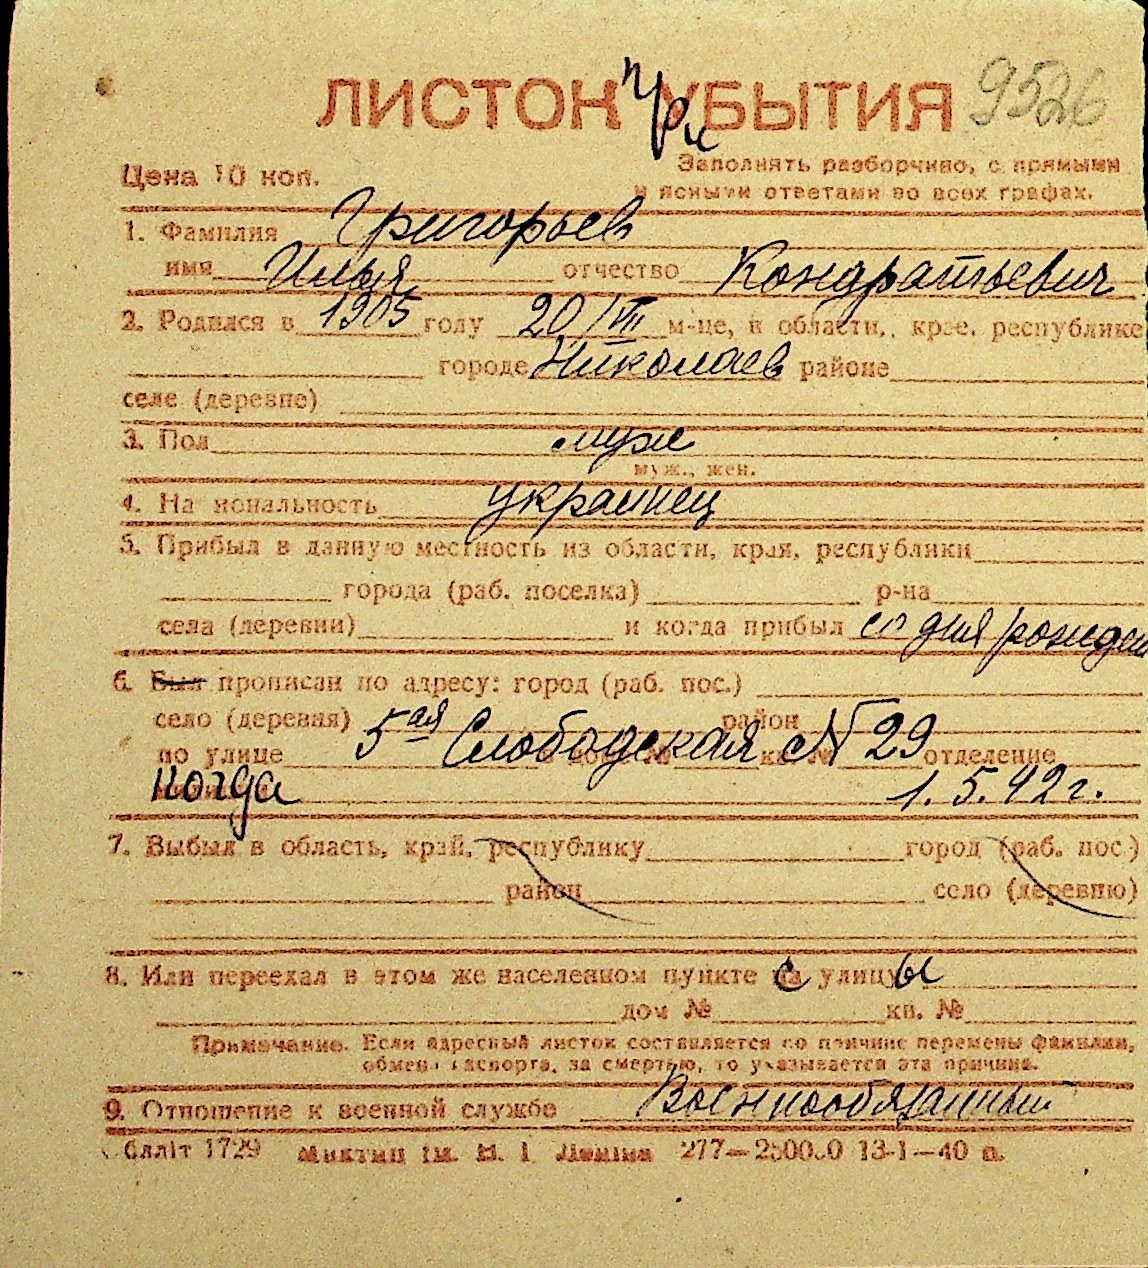 ЛИСТОК при УБЫТИЯ 9526
Цена 10 коп.
Заполнять разборчиво, с прямыми
и ясными ответами во всех графах.
1. Фамилия Григорьев
имя Илья отчество Кондратьевич
2. Родился в 1905 году 20/VII м-це, в области, крае, республике
городе Николаев районе
селе (деревне)
3. Пол муж
муж., жен.
4. Национальность украинец
5. Прибыл в данную местность из области, края, республики
города (раб. поселка) р-на
села (деревни) и когда прибыл со дня рожден
6. Был прописан по адресу: город (раб. пос.)
село (деревня) район
по улице 5ая Слободская № 29 отделение
когда 1.5.42 г.
7. Выбыл в область, край, республику город (раб. пос.)
район село (деревню)
8. Или переехал в этом же населенном пункте с улицы
дом № кв. №
Примечание. Если адресный листок составляется по причине перемены фамилии,
обмена паспорта, за смертью, то указывается эта причина.
9. Отношение к военной службе Военнообязанный
Блліт 1729 ім. В. І. Леніна 13-1—40 п.